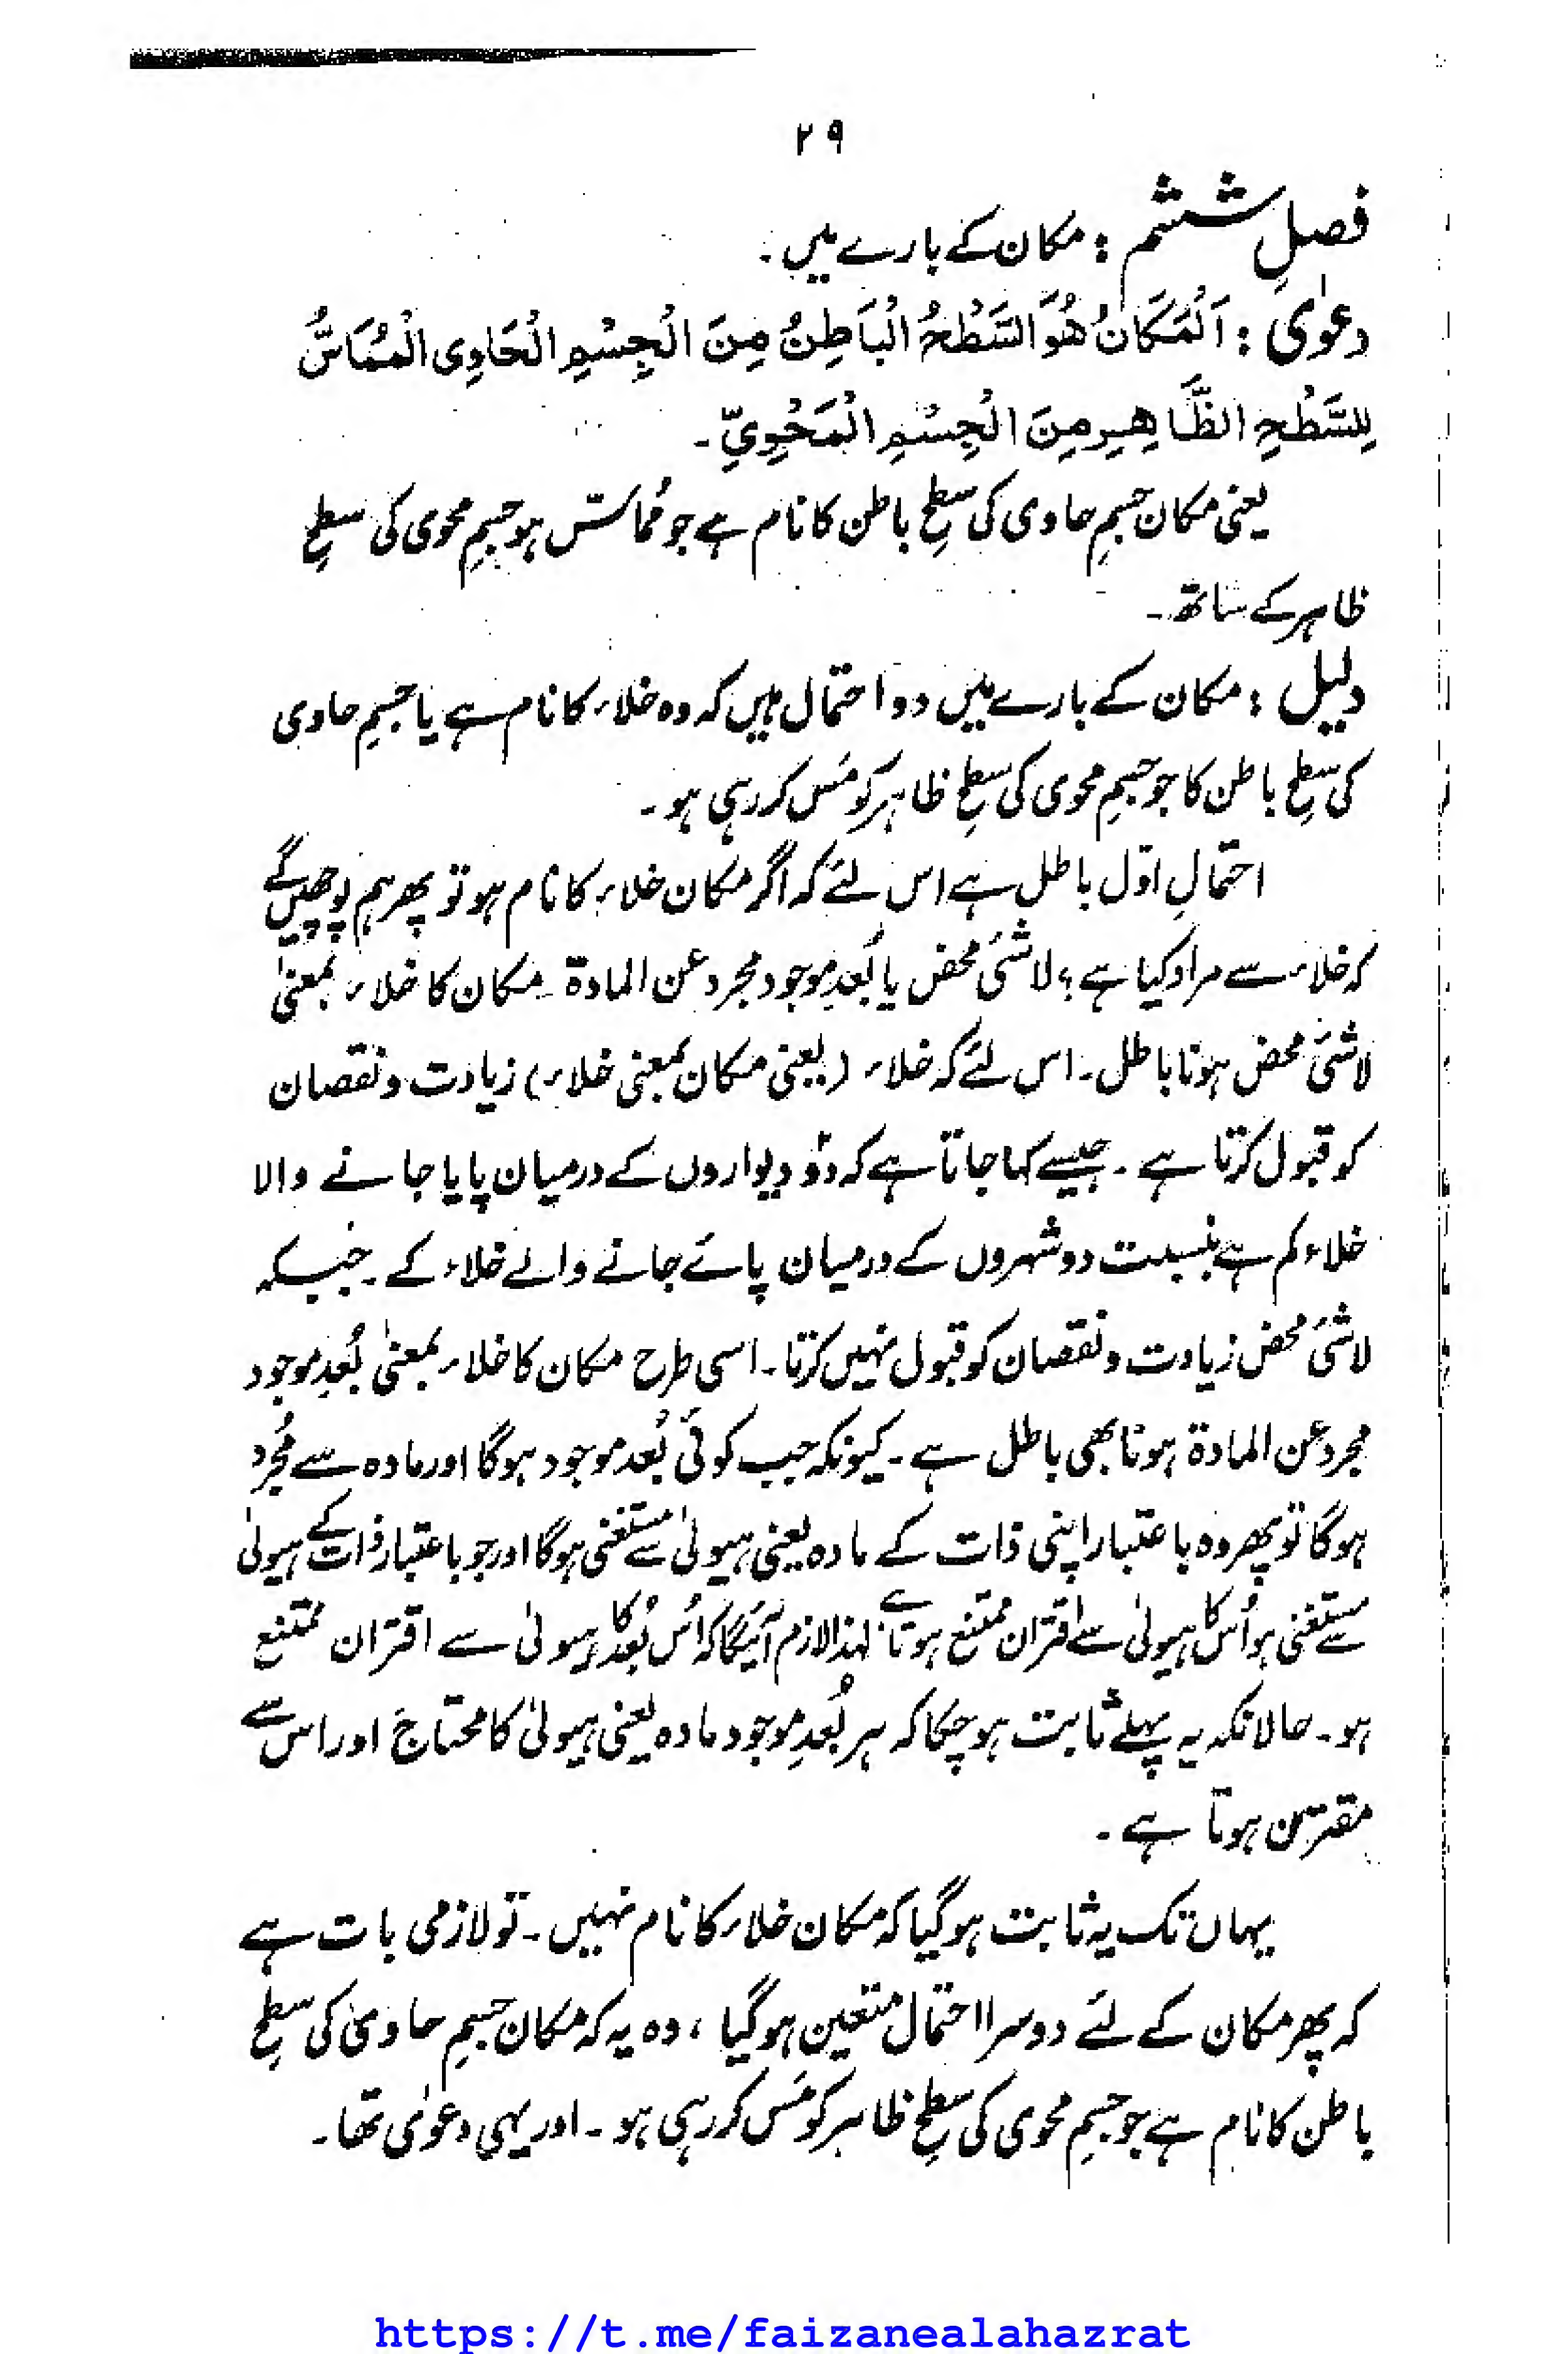 ۲۹
فصلِ ششم : مکان کے بارے میں ۔
دعوٰی : اَلْمَكَانُ هُوَ السَّطْحُ الْبَاطِنُ مِنَ الْجِسْمِ الْحَاوِى الْمُمَاسُّ
لِلسَّطْحِ الظَّاهِرِ مِنَ الْجِسْمِ الْمَحْوِيِّ ۔
یعنی مکان جسمِ حاوی کی سطحِ باطن کا نام ہے جو مُماسّ ہو جسمِ محوی کی سطحِ
ظاہر کے ساتھ ۔
دلیل : مکان کے بارے میں دو احتمال ہیں کہ وہ خلاء کا نام ہے یا جسمِ حاوی
کی سطحِ باطن کا جو جسمِ محوی کی سطحِ ظاہر کو مَس کر رہی ہو ۔
احتمالِ اوّل باطل ہے اس لئے کہ اگر مکان خلاء کا نام ہو تو پھر ہم پوچھیں گے
کہ خلاء سے مراد کیا ہے ؟ لاشَئ محض یا بُعدِ موجود مجرد عن المادۃ ۔ مکان کا خلاء بمعنیٰ
لاشَئ محض ہونا باطل ۔ اس لئے کہ خلاء (یعنی مکان بمعنی خلاء) زیادت و نقصان
کو قبول کرتا ہے ۔ جیسے کہا جاتا ہے کہ دو دیواروں کے درمیان پایا جانے والا
خلاء کم ہے بنسبت دو شہروں کے درمیان پائے جانے والے خلاء کے ۔ جبکہ
لاشَئ محض زیادت و نقصان کو قبول نہیں کرتا ۔ اسی طرح مکان کا خلاء بمعنیٰ بُعدِ موجود
مجرد عن المادۃ ہونا بھی باطل ہے ۔ کیونکہ جب کوئی بُعد موجود ہوگا اور مادہ سے مُجرد
ہوگا تو پھر وہ باعتبار اپنی ذات کے مادہ یعنی ہیولیٰ سے مستغنی ہوگا اور جو باعتبار ذات کے ہیولیٰ
سے مستغنی ہو اُس کا ہیولیٰ سے اقتران ممتنع ہوتا ہے لہذا لازم آئیگا کہ اُس بُعد کا ہیولیٰ سے اقتران ممتنع
ہو ۔ حالانکہ یہ پہلے ثابت ہو چکا کہ ہر بُعدِ موجود مادہ یعنی ہیولیٰ کا محتاج اور اس سے
مقترن ہوتا ہے ۔
یہاں تک یہ ثابت ہوگیا کہ مکان خلاء کا نام نہیں ۔ تو لازمی بات ہے
کہ پھر مکان کے لئے دوسرا احتمال متعین ہوگیا ، وہ یہ کہ مکان جسمِ حاوی کی سطحِ
باطن کا نام ہے جو جسمِ محوی کی سطحِ ظاہر کو مَس کر رہی ہو ۔ اور یہی دعوٰی تھا ۔
https://t.me/faizanealahazrat